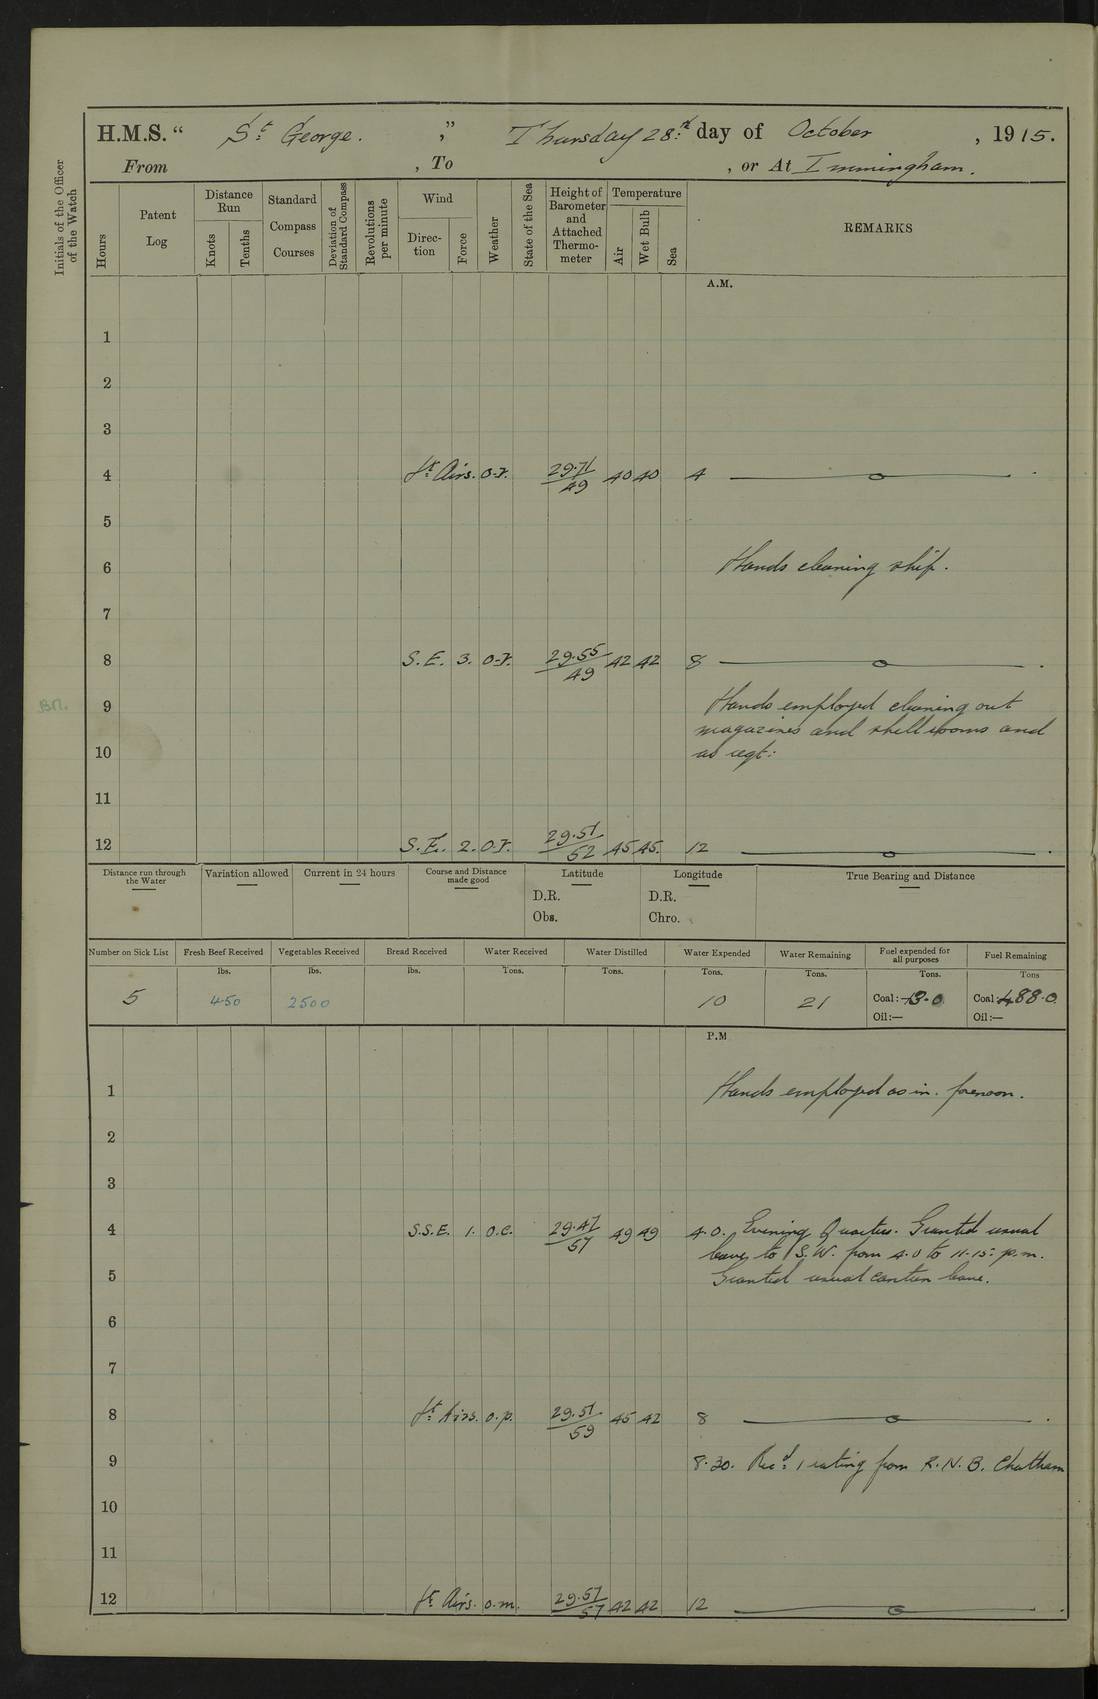 H.M.S. “ St George. ,” Thursday 28th day of October , 1915.
From , To , or At Immingham.
Initials of the Officer of the Watch
Hours
Patent Log
Distance Run
Knots
Tenths
Standard Compass Courses
Deviation of Standard Compass
Revolutions per minute
Wind
Direction
Force
Weather
State of the Sea
Height of Barometer and Attached Thermometer
Temperature
Air
Wet Bulb
Sea
REMARKS
A.M.
1
2
3
4 Lt Airs. o.r. 29.71/49 40 40 4
5
6 Hands cleaning ship.
7
8 S.E. 3. o.r. 29.55/49 42 42 8
9 Hands employed cleaning out
magazines and shellrooms and
10 as reqt:
11
12 S.E. 2. o.r. 29.51/52 45 45. 12
Distance run through the Water
Variation allowed
Current in 24 hours
Course and Distance made good
Latitude
D.R.
Obs.
Longitude
D.R.
Chro.
True Bearing and Distance
Number on Sick List Fresh Beef Received Vegetables Received Bread Received Water Received Water Distilled Water Expended Water Remaining Fuel expended for all purposes Fuel Remaining
lbs. lbs. lbs. Tons. Tons. Tons. Tons. Tons. Tons
5 450 2500 10 21 Coal:—13.0 Coal:488.0
Oil:— Oil:—
P.M
1 Hands employed as in. forenoon.
2
3
4 S.S.E. 1. o.c. 29.47/57 49 49 4.0. Evening Quarters. Granted usual
leave to S.W. from 4.0 to 11.15: p.m.
5 Granted usual canteen leave.
6
7
8 Lt Airs. o.p. 29.51/59 45 42 8
9 8.30. Recd 1 rating from R.N.B. Chatham
10
11
12 Lt Airs. o.m. 29.57/57 42 42 12